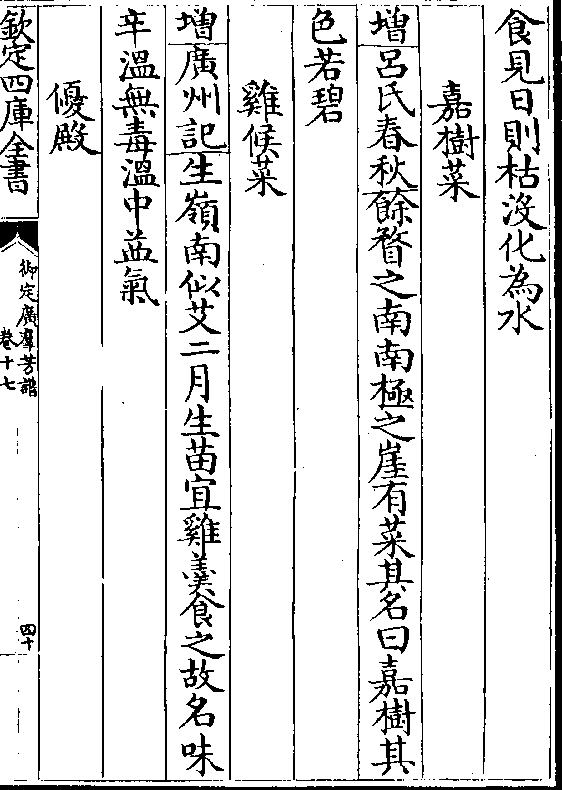 食見日則枯沒化為水
嘉樹菜
增呂氏春秋餘瞀之南南極之崖有菜其名曰嘉樹其
色若碧
雞候菜
增廣州記生嶺南似艾二月生苗宜雞羹食之故名味
辛溫無毒溫中益氣
優殿
欽定四庫全書
御定廣羣芳譜
卷十七
四十